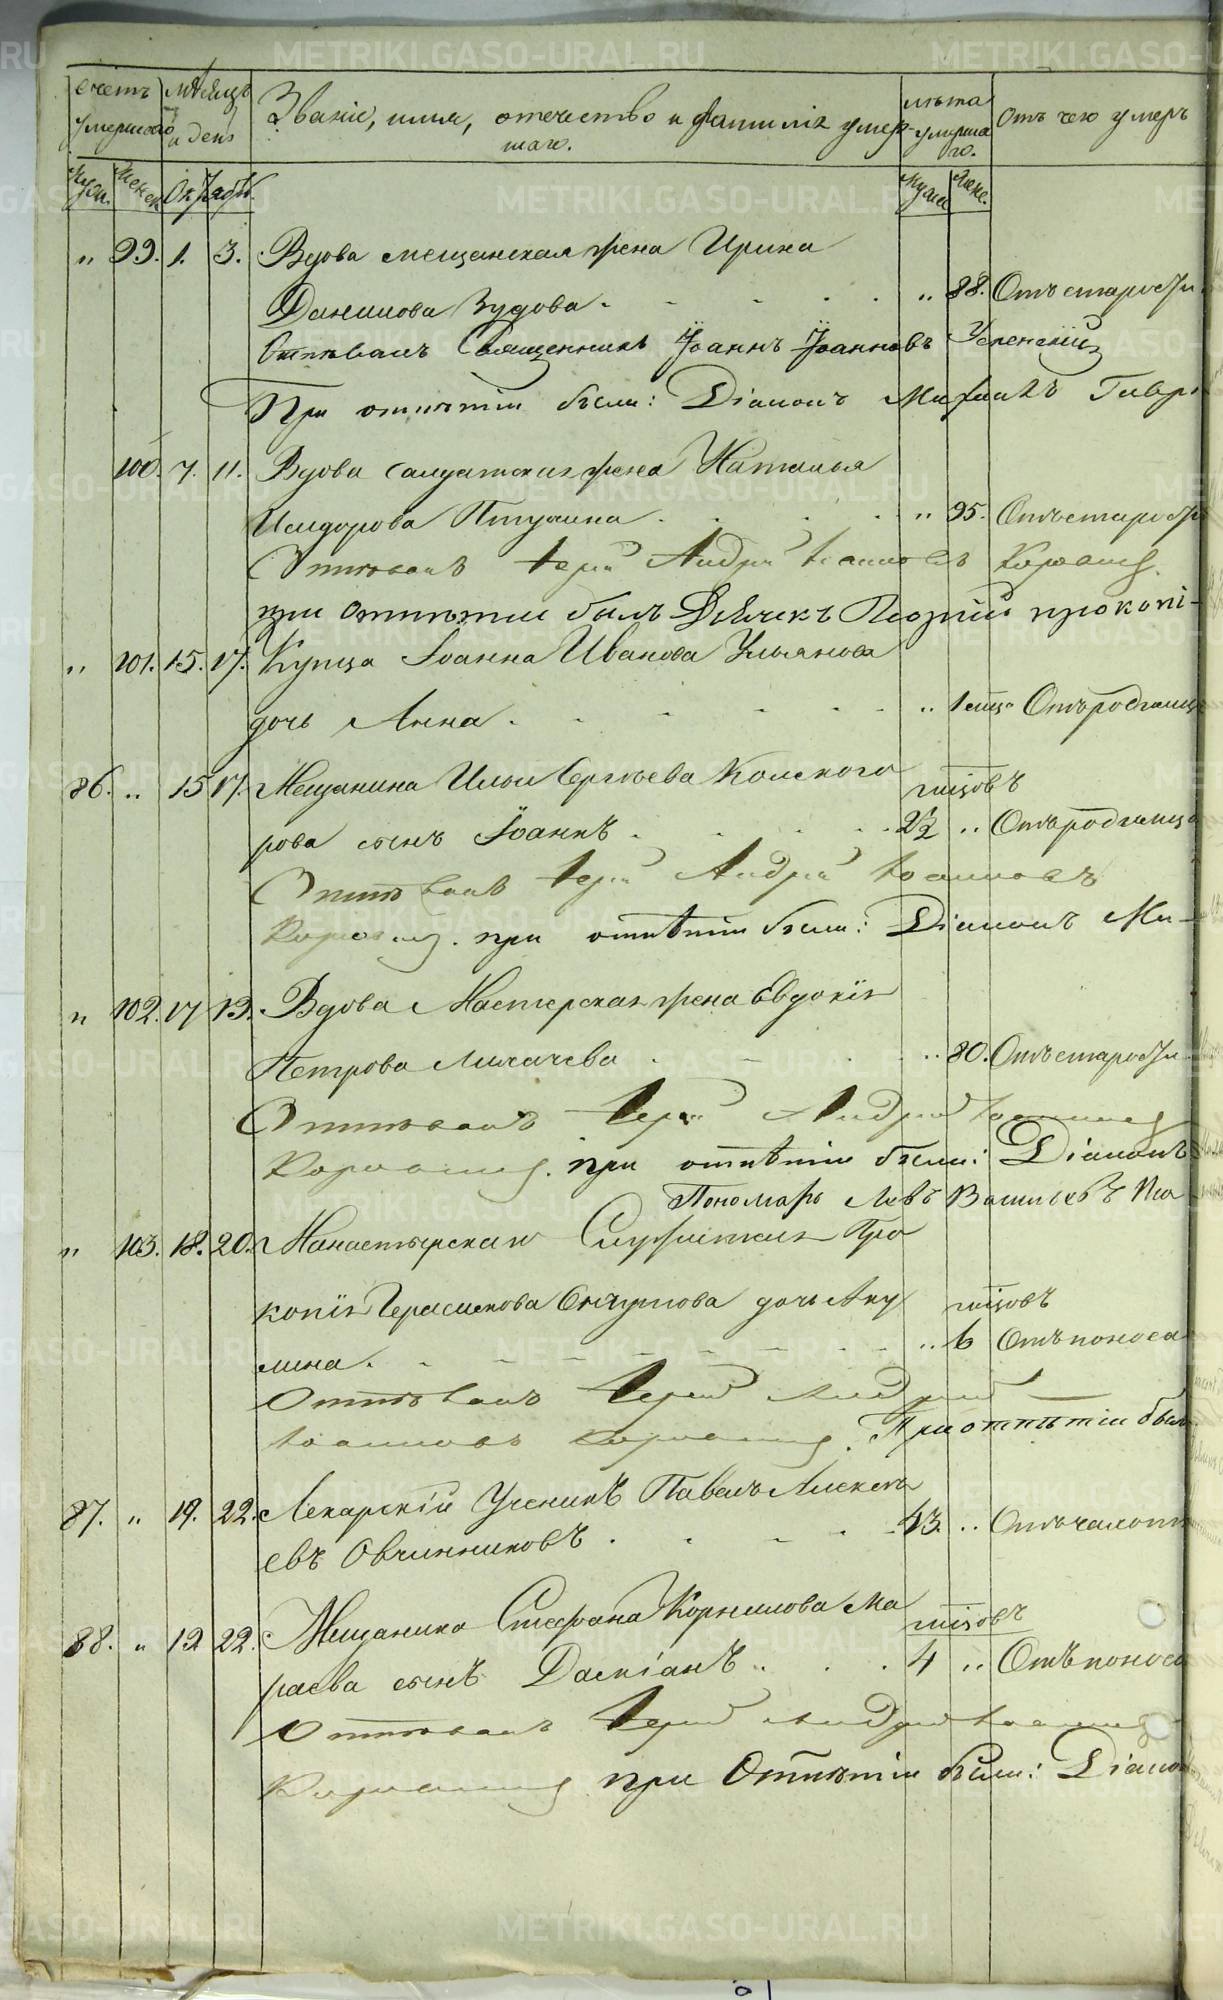 METRIKI.GASO-URAL.RU
Счетъ умершаго
Мѣсяцъ и день
Званіе, имя, отечество и фамилія умер-
шаго.
лѣта умерша
го.
Отъ чего умеръ
Муж. Женск. Октябрь. Муж. Жен.
" 99. 1. 3. Вдова мещанская жена Ирина
Данилова Зудова. " 88. Отъ старости
Отпѣвалъ Священникъ Іоаннъ Іоанновъ Успенскій
При отпѣтіи были: Діаконъ Михаилъ Гавр
100. 7. 11. Вдова салдатская жена Наталья
Исидорова Птухина. " 95. Отъ старости
Отпѣвалъ Іерей Андрей Іоанновъ
при отпѣтіи былъ Дьячекъ Георгій прокопі-
" 101. 15. 17. Купца Іоанна Иванова Ульянова
дочь Анна. " 1 мца Отъ родимца
86. " 15 17. Мещанина Ильи Сергѣева Комского
рова сынъ Іоаннъ. мцовъ 2½ " Отъ родимца
Отпѣвалъ Іерей Андрей Іоанновъ
при отпѣтіи были: Діаконъ Ми-
" 102. 17 19. Вдова Мастерская жена Евдокія
Петрова Лихачева " 80. Отъ старости
Отпѣвалъ Іерей Андрей
при отпѣтіи были: Діаконъ
Пономарь Левъ Васильевъ
" 103. 18. 20. Манастырская Служителя Про
копія Герасимова дочь Аку мцовъ
лина. " 6 Отъ поноса
Отпѣвалъ Іерей Андрей
Іоанновъ При отпѣтіи был
87. " 19. 22. Лекарскій Ученикъ Павелъ Алексѣ
евъ Овчинниковъ. 43. " Отъ чахотк
88. " 19 22. Мещанина Стефана Корнилова Ма
раева сынъ Даміанъ мцовъ 4 " Отъ поноса
Отпѣвалъ Іерей Андрей
при Отпѣтіи были: Діакон